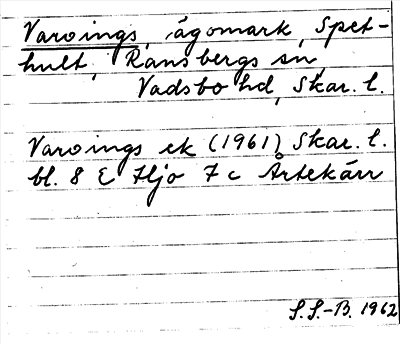 Varvings, ägomark, Spet-
hult, Ransbergs sn,
Vadsbo hd, Skar. l.
Varvings ek (1961) Skar. l.
bl. 8 E Hjo 7 c Årtekärr
S. S.-B. 1962